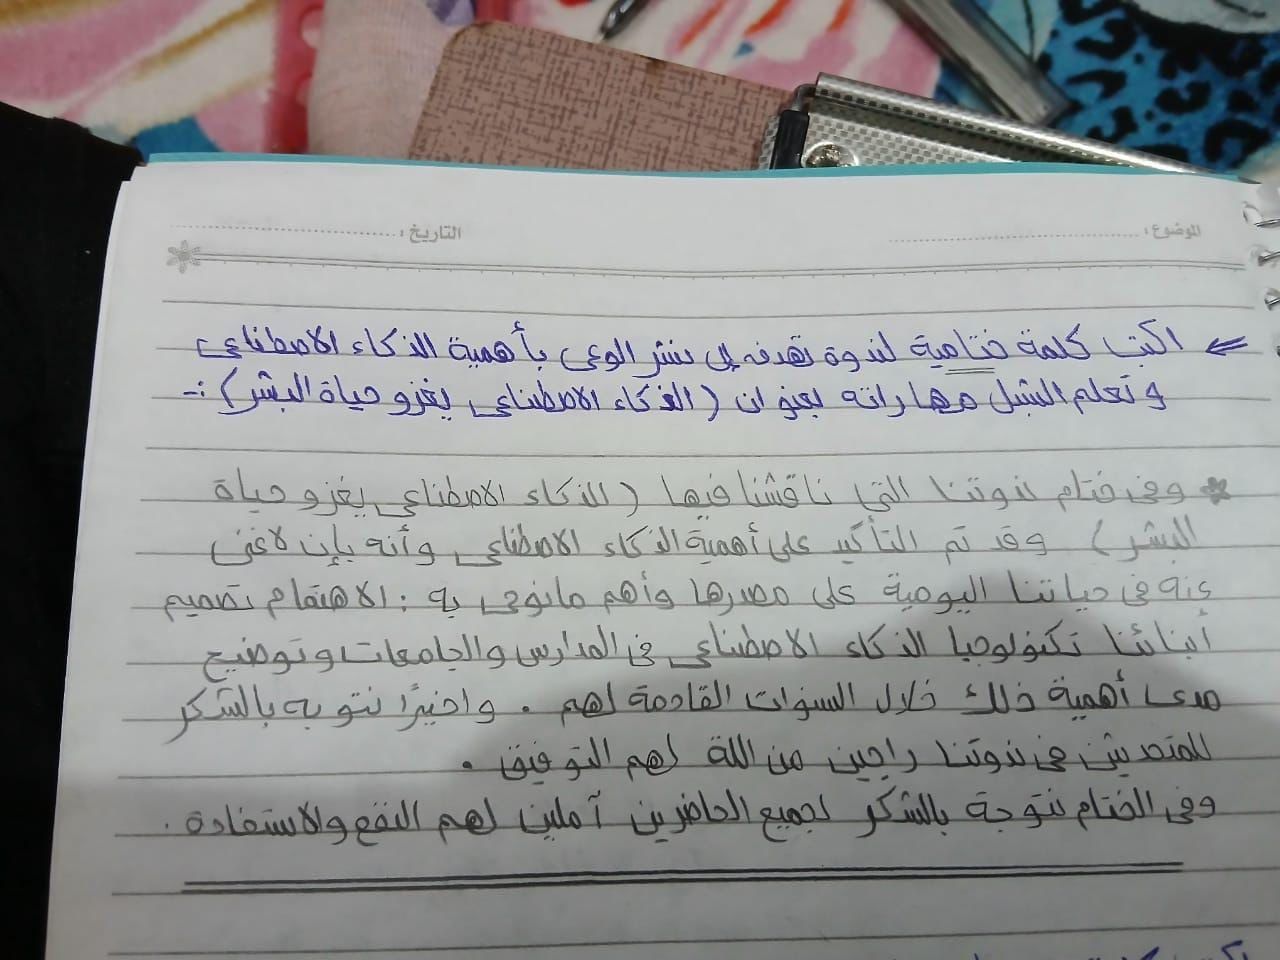 الموضوع : التاريخ :
اكتب كلمة ختامية لندوة تهدف إلى نشر الوعى بأهمية الذكاء الاصطناعى
وتعلم السبل مهاراته بعنوان (الذكاء الاصطناعى يغزو حياة البشر) :-
* وفى ختام ندوتنا التى ناقشنا فيها (الذكاء الاصطناعى يغزو حياة
البشر) وقد تم التأكيد على أهمية الذكاء الاصطناعى وأنه بات لا غنى
عنه فى حياتنا اليومية على مصرها وأهم ما نوصى به : الاهتمام تصميم
أبنائنا تكنولوجيا الذكاء الاصطناعى فى المدارس والجامعات وتوضيح
مدى أهمية ذلك خلال السنوات القادمة لهم . واخيرًا نتوجه بالشكر
للمتحدثين فى ندوتنا راجين من الله لهم التوفيق .
وفى الختام نتوجة بالشكر لجميع الحاضرين آملين لهم النفع والاستفادة .